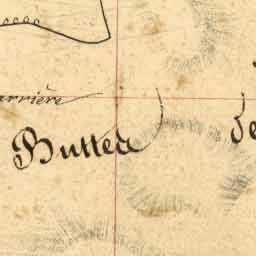 arrière
Butte de
de